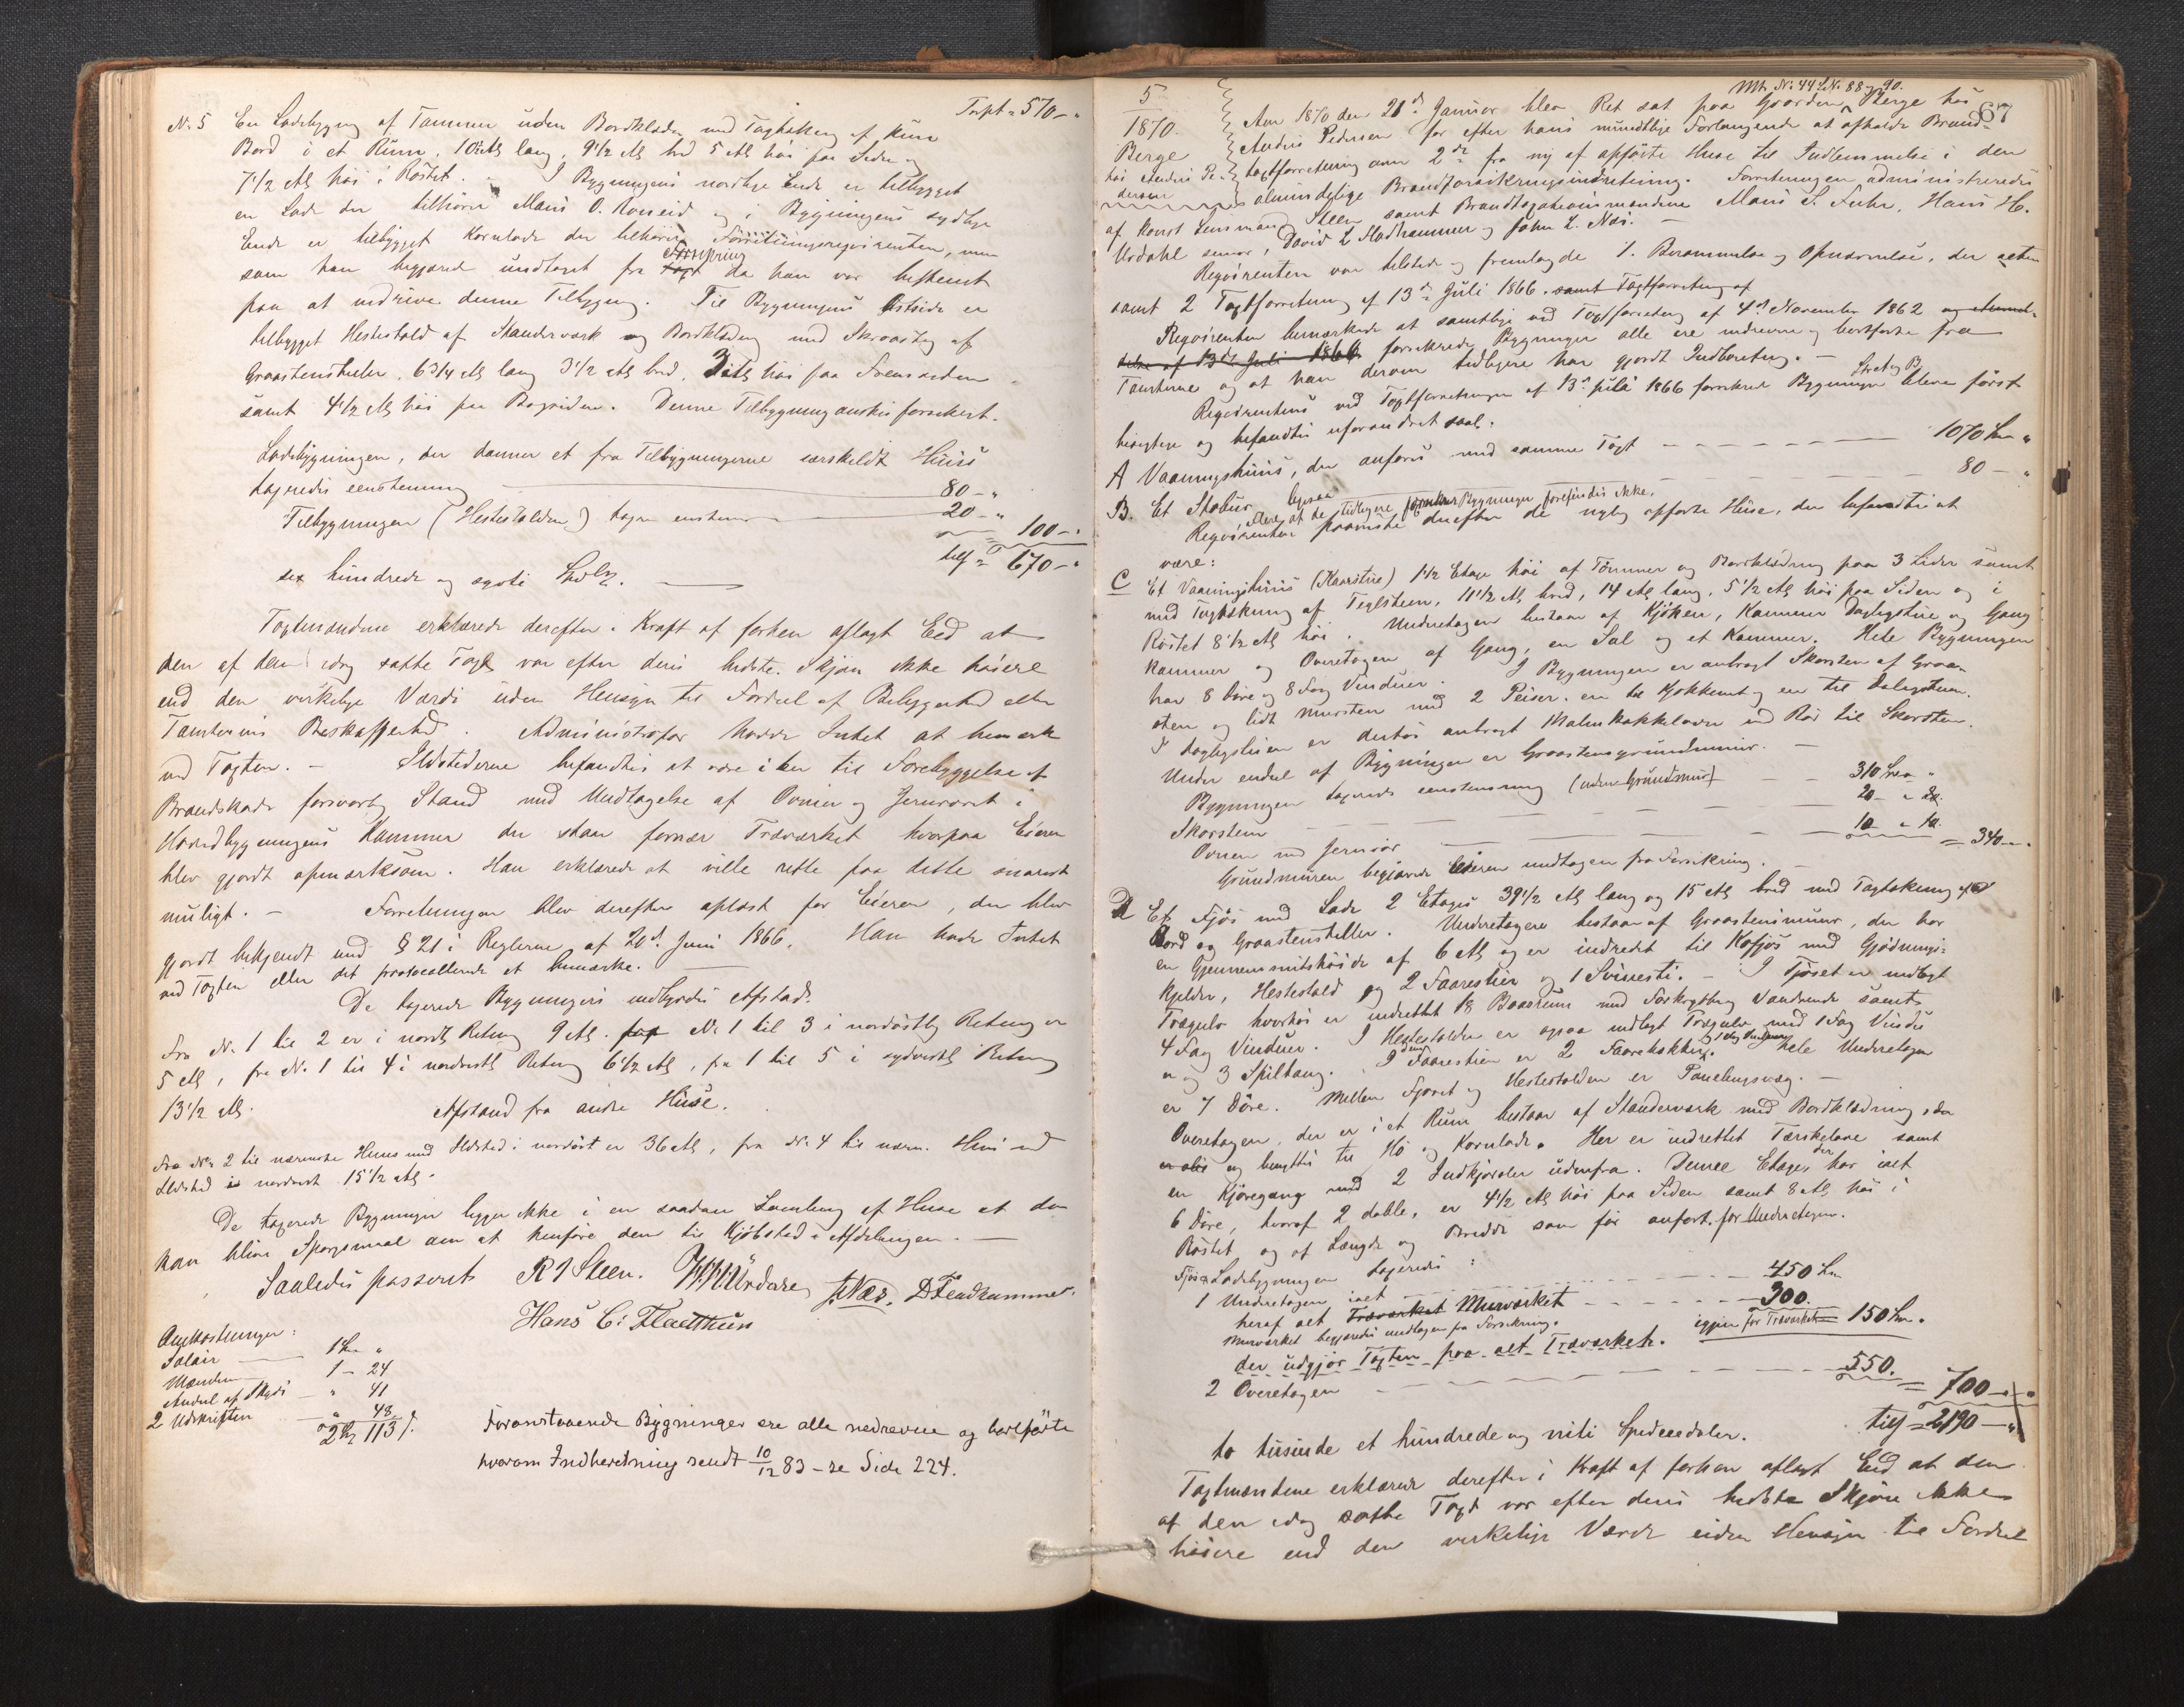 Trspt = 570 – "
No 5 En Ladebygng af Tømmer uden Bordklædn med Taghækng af kun
Bord i et Rum, 10 Al lang, 9 1/2 Al bred 5 Al høi paa Siden og
7 1/2 Al høi i Røstet. – I Bygningens nordlige Ende er tilbygget
en Lade der tilhører Mons O. og i Bygningens sydlige
Ende er tilbygget Kornlade der tilhører Forretningsreqvirenten, men
som han begjærede undtaget fra Forsikring da han var bestemt
paa at nedrive denne Tilbygng. Til Bygningens Østside er
tilbygget Hestestald af Standerværk og Bordklædng med Skraatag af
Graastensheller, 6 3/4 Al lang 3 1/2 Al bred, 3 Al høi paa Fremsiden
samt 4 1/2 Al høi paa Bagsiden. Denne Tilbygning ønskes forsikret.
Ladebygningen, der danner et fra Tilbygningerne særskildt Huus
taxeredes eenstemmig 80 – "
Tilbygningen (Hestestalden) taxer enstem 20 – "
= 100 – "
tils = 670 – "
sex hundrede og sytti Spdlr.
Taxtmændene erklærede derefter i Kraft af forhen aflagt Eed at
den af dem idag satte Taxt var efter deres bedste Skjøn ikke høiere
end den virkelige Værdi uden Hensyn til Fordeel af Beliggenhed eller
Tomternes Beskaffenhed. Administrator havde Intet at bemærke
ved Taxten. – Ildstederne befandtes at være i en til Forebyggelse af
Brandskade forsvarlig Stand med Undtagelse af Ovnen og Jernrøret i
Hovedbygningens Kammer der staar fornær Træværket hvorpaa Eieren
blev gjordt opmærksom. Han erklærede at ville rette paa dette snarest
muligt. – Forretningen blev derefter oplæst for Eieren, der blev
gjordt bekjendt med § 21 i Reglerne af 20de Juni 1866. Han havde Intet
ved Taxten eller det protocollerede at bemærke.
De taxerede Bygningers indbyrdes Afstad.
Fra No 1 til 2 er i nordl Retng 9 Al. fra No 1 til 3 i nordøstlig Retning er
5 Al, fra No. 1 til 4 i nordvestl Retng 6 1/2 Al, fra 1 til 5 i sydvestl Retning
13 1/2 Al. Afstand fra andre Huse.
Fra No 2 til nærmeste Huus med Ildsted i nordøst er 36 Al, fra No. 4 til nærm. Huus med
Ildsted i nordvest 15 1/2 Al.
De taxerede Bygninger ligger ikke i en saadan Samling af Huse at der
kan blive Spørgsmaal om at henføre dem til Kjøbstads Afdelingen.
Saaledes passeret R I Steen. HHUrdare JNæs. D Stadhammer.
Hans C: Flaetthun
Omkostninger:
Salair 1 Spd "
Mændene 1 – 24
Andeel af Skyds – " 41
2 Udskrifter " 48
2 Spd 113 s.
Foranstaaende Bygninger ere alle nedrevne og bortførte
hvorom Indberetning sendt 10/12 83 – se Side 224.
67
5/1870.
Berge
hos Anders Pedersen
Mt. No. 44 L No. 88 og 90.
Aar 1870 den 21de Januar blev Ret sat paa Gaarden Berge hos
Anders Pedersen for efter hans mundtlige Forlangende at afholde Brand-
taxtforretning over 2de fra ny af opførte Huse til Indlemmelse i den
almindelige Brandforsikringsindretning. Forretningen administreredes
af konst Lensmand Steen samt Brandtaxationsmændene Mons S. Fuhr, Hans H.
Urdahl senior, David L Stadhammer og John L. Næs. –
Reqvirenten var tilstede og fremlagde 1. Berammelse og Opnævnelse, der
samt 2 Taxtforretning af 13de Juli 1866. samt Taxtforretng af
Reqvirenten bemærkede at samtlige ved Taxtforretng af 4de November 1862 og
af 13de Juli 1866 forsikrede Bygninger alle ere nedrevne og bortførte fra
Tomterne og at han derom tidligere har gjordt Indberetng. –
Reqvirentens ved Taxtforretningen af 13de Juli 1866 forsikrede Bygninger Litet og B, bleve først
besigtige og befandtes uforandret saal:
A Vaaningshuus, der anføres med samme Taxt 1070 Spd "
B. Et Stabur ligesaa 80 – "
Mere af de tidligere forsikrede Bygninger forefindes ikke.
Reqvirenten paaviste derefter de nylig opførte Huse, der befandtes at
være:
C Et Vaaningshuus (Kaarstue) 1 1/2 Etage høi af Tømmer og Bordklædning paa 3 Sider samt
med Taghækning af Teglsteen, 11 1/2 Al bred, 14 Al lang, 5 1/2 Al høi paa Siden og i
Røstet 8 1/2 Al høi. Underetagen bestaar af Kjøken, Kammer Dagligstue og Gang
Kammer og Overetagen af Gang, en Sal og et Kammer. Hele Bygningen
har 8 Døre og 8 Fag Vinduer. I Bygningen er anbragt Skorsten af Graa-
sten og lidt Mursten med 2 Peiser. en til Kjøkkenet og en til Dalegstuen.
I Daglegstuen er desfor anbragt Malmkakkelovn med Rør til Skorsten.
Under endeel af Bygningen er Graastensgrundmuur. –
Bygningen taxeredes eenstemmig (uden Grundmur) 310 Spd "
Skorsten 20 – "
Ovnen med Jernrør 10 – " = 340 – "
Grundmuren begjærede Eieren undtagen fra Forsikring.
D Et Fjøs med Lade 2 Etages 39 1/2 Al lang og 15 Al bred med Taghækning af
Bord og Graastensheller. Underetagen bestaar af Graastensmuur, der har
en Gjennemsnitshøide af 6 Al og er indredet til Kofjøs med Gjødnings-
kjelder, Hestestald og 2 Faarestier og 1 Svinesti. – I Fjøset er indlagt
Trægulv hvorhos er indrettet 18 Baasrum med Forkrybbe og Vandrende samt
4 Fag Vinduer. I Hestestalden er ogsaa indlagt Trægulv med 1 Fag Vindu
er og 3 Spiltoug. I Faarestien er 2 Faarehækker. 1 Fag Vinduer hele Underetagen
er 7 Døre. Mellem Fjøset og Hestestalden er Panelingsvæg. –
Overetagen, der er i et Rum bestaar af Standerværk med Bordklædning
og benyttes til Hø og Kornlade. Her er indrettet Tærskelove samt
en Kjøregang med 2 Indkjørsler udenfra. Denne Etage, der har ialt
6 Døre, hvoraf 2 doble, er 4 1/2 Al høi paa Siden samt 8 Al høi i
Røstet og af Længde og Bredde som før anført for Underetagen.
Fjøs & Ladebygningen taxeredes:
1 Underetagen ialt 450 Spd
heraf alt Træværket Murværket 300.
Murværket begjæredes undtagen fra Forsikring. igjen for Træværket 150 Spd.
der udgjør Taxten paa alt Træværket.
2 Overetagen 550.
= 700 – "
tils = 2190 – "
to tusinde et hundrede og niti Speciedaler.
Taxtmændene erklærede derefter i Kraft af forhen aflagt Eed at den
af dem idag satte Taxt var efter deres bedste Skjøn ikke
høiere end den virkelige Værdi uden Hensyn til Fordeel